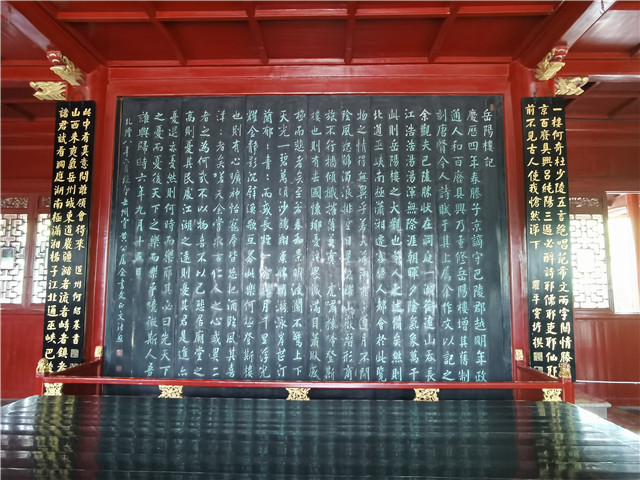 一樓何奇杜少陵五言絕唱范希文兩字關情滕子
京百廢具興呂純陽三過必醉詩耶儒耶吏耶仙耶
前不見古人使我愴然涕下
岳陽樓記
慶歷四年春滕子京謫守巴陵郡越明年政
通人和百廢具興乃重修岳陽樓增其舊制
刻唐賢今人詩賦于其上屬余作文以記之
余觀夫巴陵勝狀在洞庭一湖銜遠山吞長
江浩浩湯湯渾無際涯朝暉夕陰氣象萬千
此則岳陽樓之大觀也前人之述備矣然則
北通巫峽南極瀟湘遷客騷人多會於此覽
物之情得無異乎若夫霪雨霏霏連月不開
陰風怒號濁浪排空日星隱曜山岳潛形商
旅不行檣傾楫摧薄暮冥冥虎嘯猿啼登斯
樓也則有去國懷鄉憂讒畏譏滿目蕭然感
極而悲者矣至若春和景明波瀾不驚上下
天光一碧萬頃沙鷗翔集錦鱗游泳岸芷汀
蘭郁郁青青而或長煙一空皓月千里浮光
耀金靜影沉璧漁歌互答此樂何極登斯樓
也則有心曠神怡寵辱皆忘把酒臨風其喜
洋洋者矣嗟夫余嘗求古仁人之心或異二
者之為何哉不以物喜不以己悲居廟堂之
高則憂其民處江湖之遠則憂其君是進亦
憂退亦憂然則何時而樂耶其必曰先天下
之憂而憂後天下之樂而樂乎噫微斯人吾
誰與歸時六年九月十五日
諸君試看洞庭湖南極瀟湘揚子江北通巫峽巴
山西來爽氣岳州城東道巖疆瀦者流者峙者鎮者
此中有真意問誰領會得來
道州何紹基書